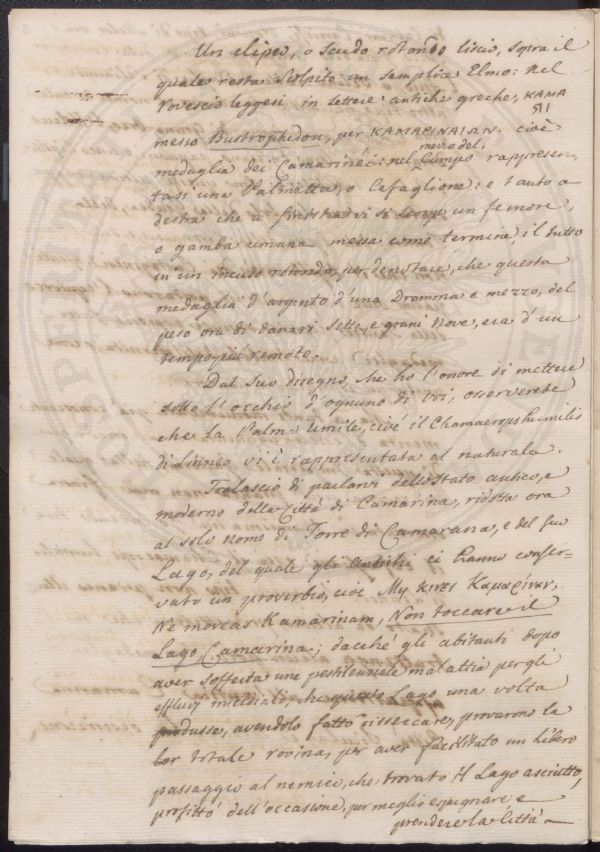 Un clipeo, o scudo rotondo liscio, sopra il
quale resta scolpito un semplice Elmo: nel
rovescio leggesi in lettere antiche greche, ΚΑΜΑ
ЯΙ
messo Bustrophedon, per ΚΑΜΑΡΙΝΑΙΩΝ. cioè
mezzo del
medaglia dei Camarinéi: nel Campo rappresen,
tasi una Palmetta, o Cefaglione: e tanto a
destra che a sinistra vi si scorge un femore,
o gamba umana messa come termine, il tutto
in un incuso rotondo, per denotare, che questa
medaglia d'argento d'una Dramma e mezzo, del
peso ora di danari sette, e grani nove, era d'un
tempo più remoto.
Dal suo disegno, che ho l'onore di mettere
sotto l'occhio d'ognuno di voi, osserverete
che la Palma umile, cioè il Chamaerops humilis
di Linneo vi è rappresentata al naturale.
Tralascio di parlarvi dello stato antico, e
moderno della Città di Camarina, ridotta ora
al solo nome di Torre di Camarana, e del suo
Lago, del quale gli antichi ci hanno conser-
vato un proverbio, cioè Μη κινει Καμαρίναν,
Ne moveas Kamarinam, Non toccare il
Lago Camarina; dacché gli abitanti dopo
aver sofferta una pestilenziale malattia per gli
effluvj micidiali, che questo Lago una volta
produsse, avendolo fatto disseccare, provarono la
lor totale rovina, per aver facilitato un libero
passaggio al nemico, che trovato il Lago asciutto,
profittò dell'occasione, per meglio espugnare e
prendere la Città